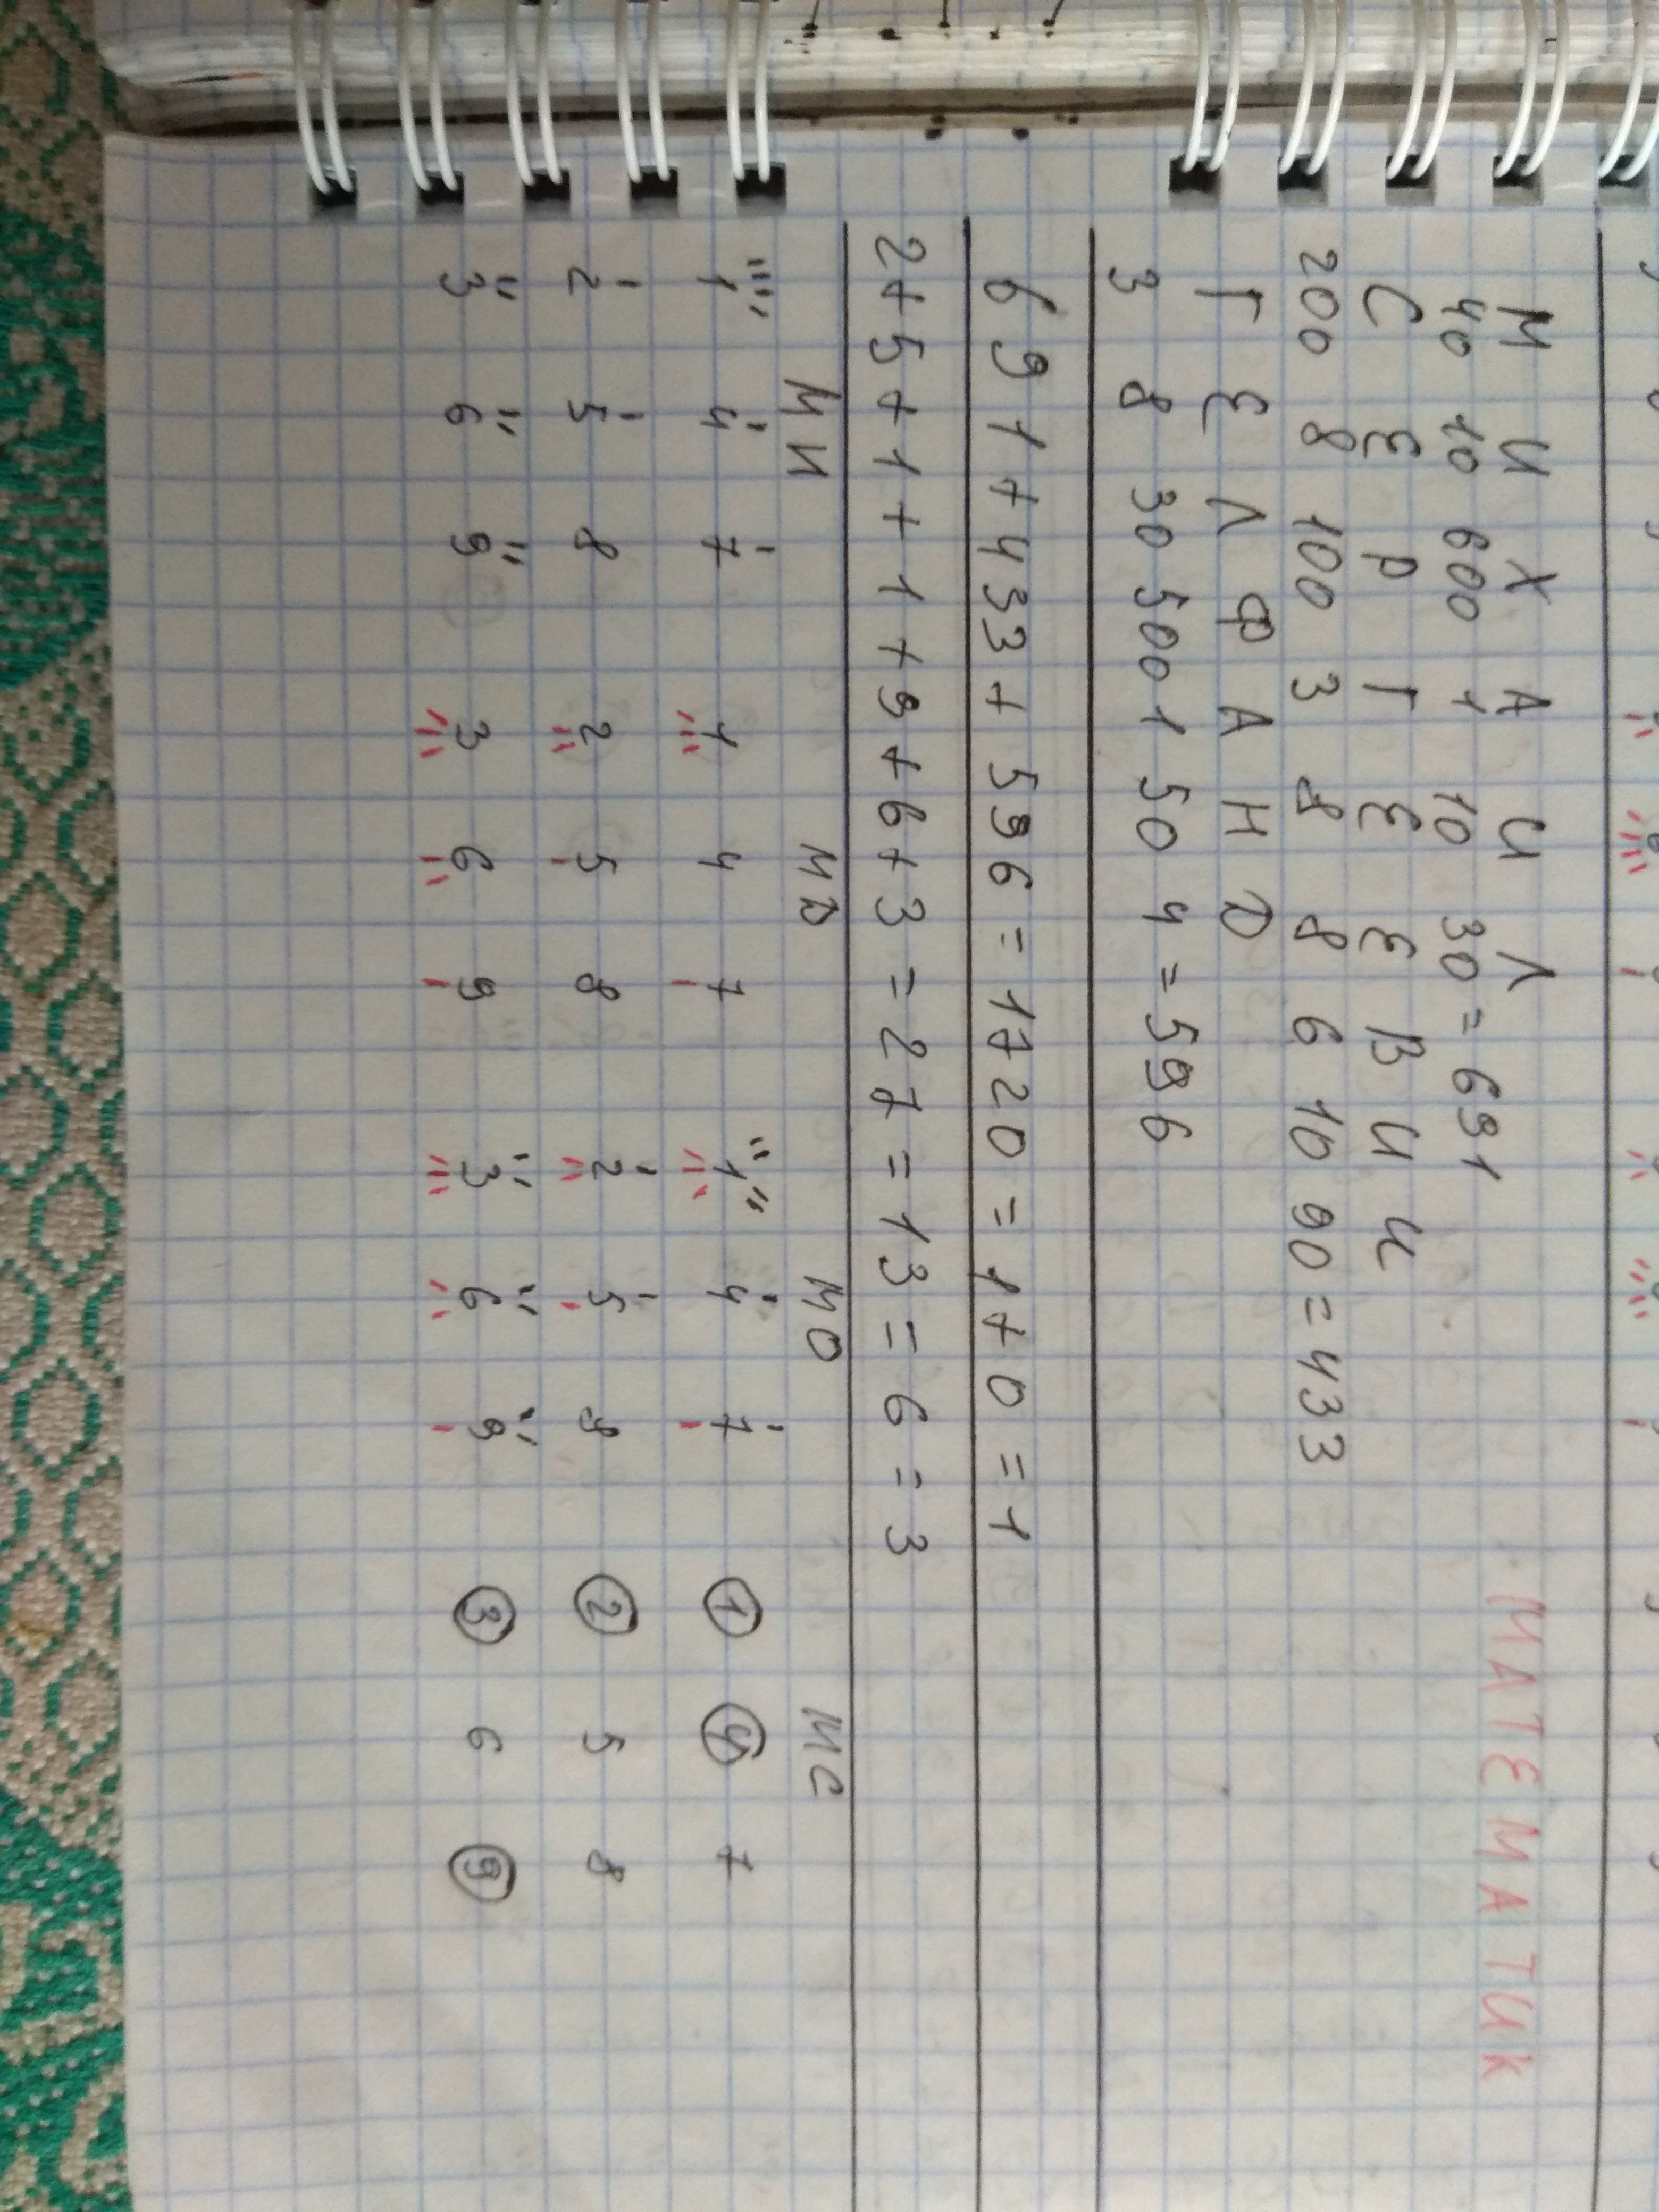 М И Х А И Л
40 10 600 1 10 30 = 691
МАТЕМАТИК
С Е Р Г Е Е В И Ч
200 8 100 3 8 8 6 10 90 = 433
Г Е Л Ф А Н Д
3 8 30 500 1 50 4 = 596
691 + 433 + 596 = 1720 = 1+0 = 1
2+5+1+1+9+6+3 = 27 = 13 = 6 = 3
МИ МД МО МС
1 4 7 1 4 7 1 4 7 1 4 7
2 5 8 2 5 8 2 5 8 2 5 8
3 6 9 3 6 9 3 6 9 3 6 9